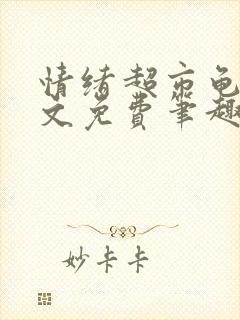 情绪超市龟
文免费笔趣
妙卡卡